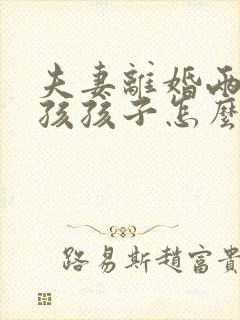 夫妻離婚兩
孩孩子怎麼
路易斯趙富貴